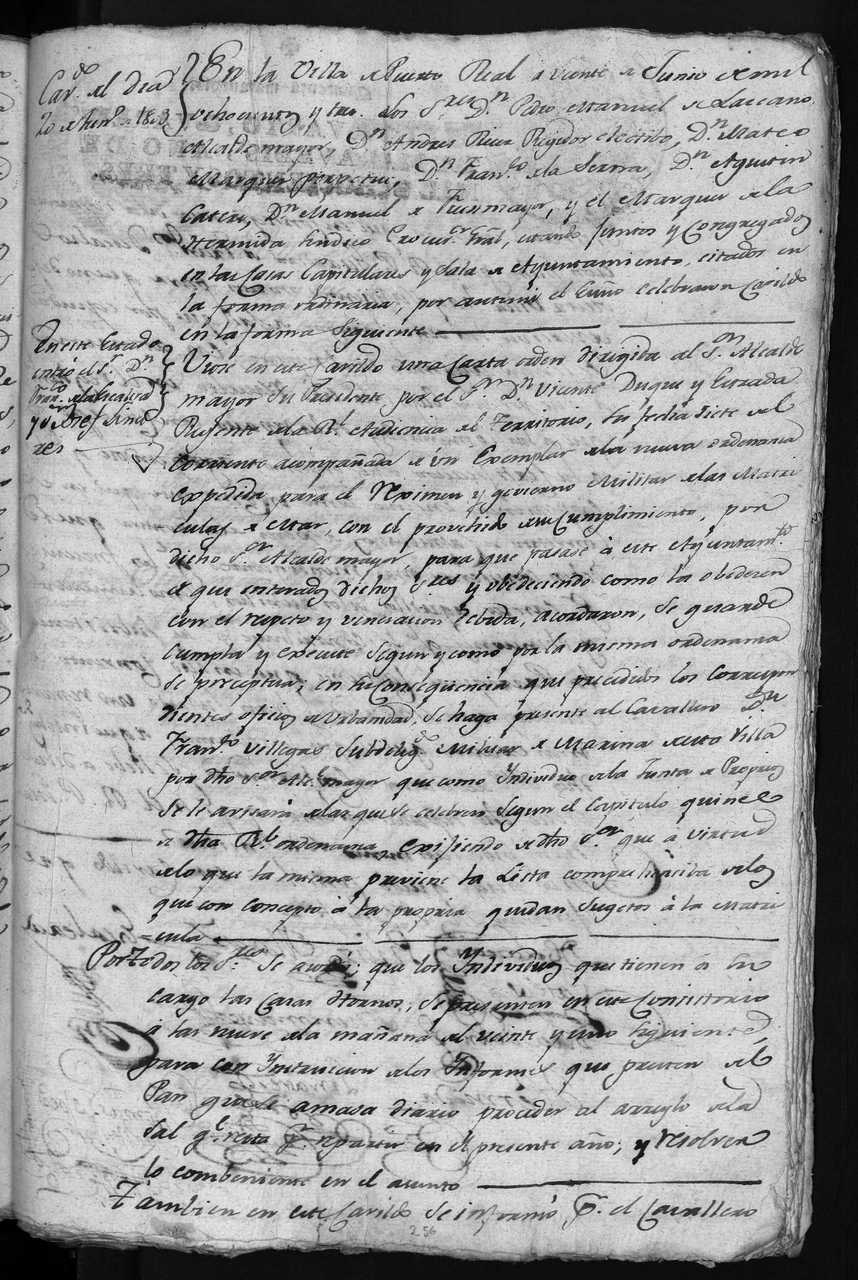 Cav.do del dia
20 de Jun.o de 1803
En la Villa de Puerto Real a veinte de Junio de mil
ochocientos y tres. los S.res D.n Pedro Manuel de Lazcano,
Alcalde mayor, D.n Andres Regidor electibo, D.n Mateo
Marquez perpetui, D.n Fran.co de la Serra, D.n Agustin
D.n Manuel de Fuenmayor, y el Marques de la
Hermida Sindico Procur.or Gral, estando Juntos y Congregados
en las Casas Capitulares y Sala de Ayuntamiento, citados en
la forma ordinaria, por antemi el Esno celebraron Cavildo
en la forma Siguiente
En este Estado
entró el S.r D.n
Fran.co de la
y
Viose en este Cavildo una Carta orden dirigida al S.or Alcalde
mayor Su Presidente por el S.or D.n Vicente Duque y Estrada
Regente de la R.l Audiencia del Territorio, su fecha siete del
corriente acompañada de un Exemplar de la nueva ordenanza
expedida para el Reximen y govierno Militar de las Matri
culas de Mar, con el provehido de su Cumplimiento, por
dicho S.or Alcalde mayor, para que pasase à este Ayuntam.to
de que enterados dichos S.res y obedeciendo como la obedecen
con el respeto y veneracion debida, acordaron, Se guarde
Cumpla y execute Segun y como por la misma ordenanza
Se perceptua; en su Consequencia que precedidos los Correspon
dientes oficios de Urbanidad, Se haga presente al Cavallero D.n
Fran.co Villegas Subdeleg.do Militar de Marina de esta Villa
por dho S.or Alc.e mayor que como Individuo de la Junta de Propios
Se le avisará a las que Se celebren Segun el Capitulo quince
de dha R.l ordenanza, exijiendo de dho S.or que à virtud
de lo que la misma previene la Lista comprehensiba de los
que con Concepto à la propria quedan Sugetos à la Matri
=cula
Por todos los S.res Se acordó; que los Individuos que tienen à su
cargo las Casas Hornos, Se presenten en este Consistorio
à las nueve de la mañana del veinte y uno Siguiente,
para con Instruccion de los Informes que presten del
Pan que se amasa diario proceder al arreglo de la
Sal q.e resta p.r repartir en el presente año; y resolver
lo combeniente en el asunto
Tambien en este Cavildo Se informó, p.r el Cavallero
256